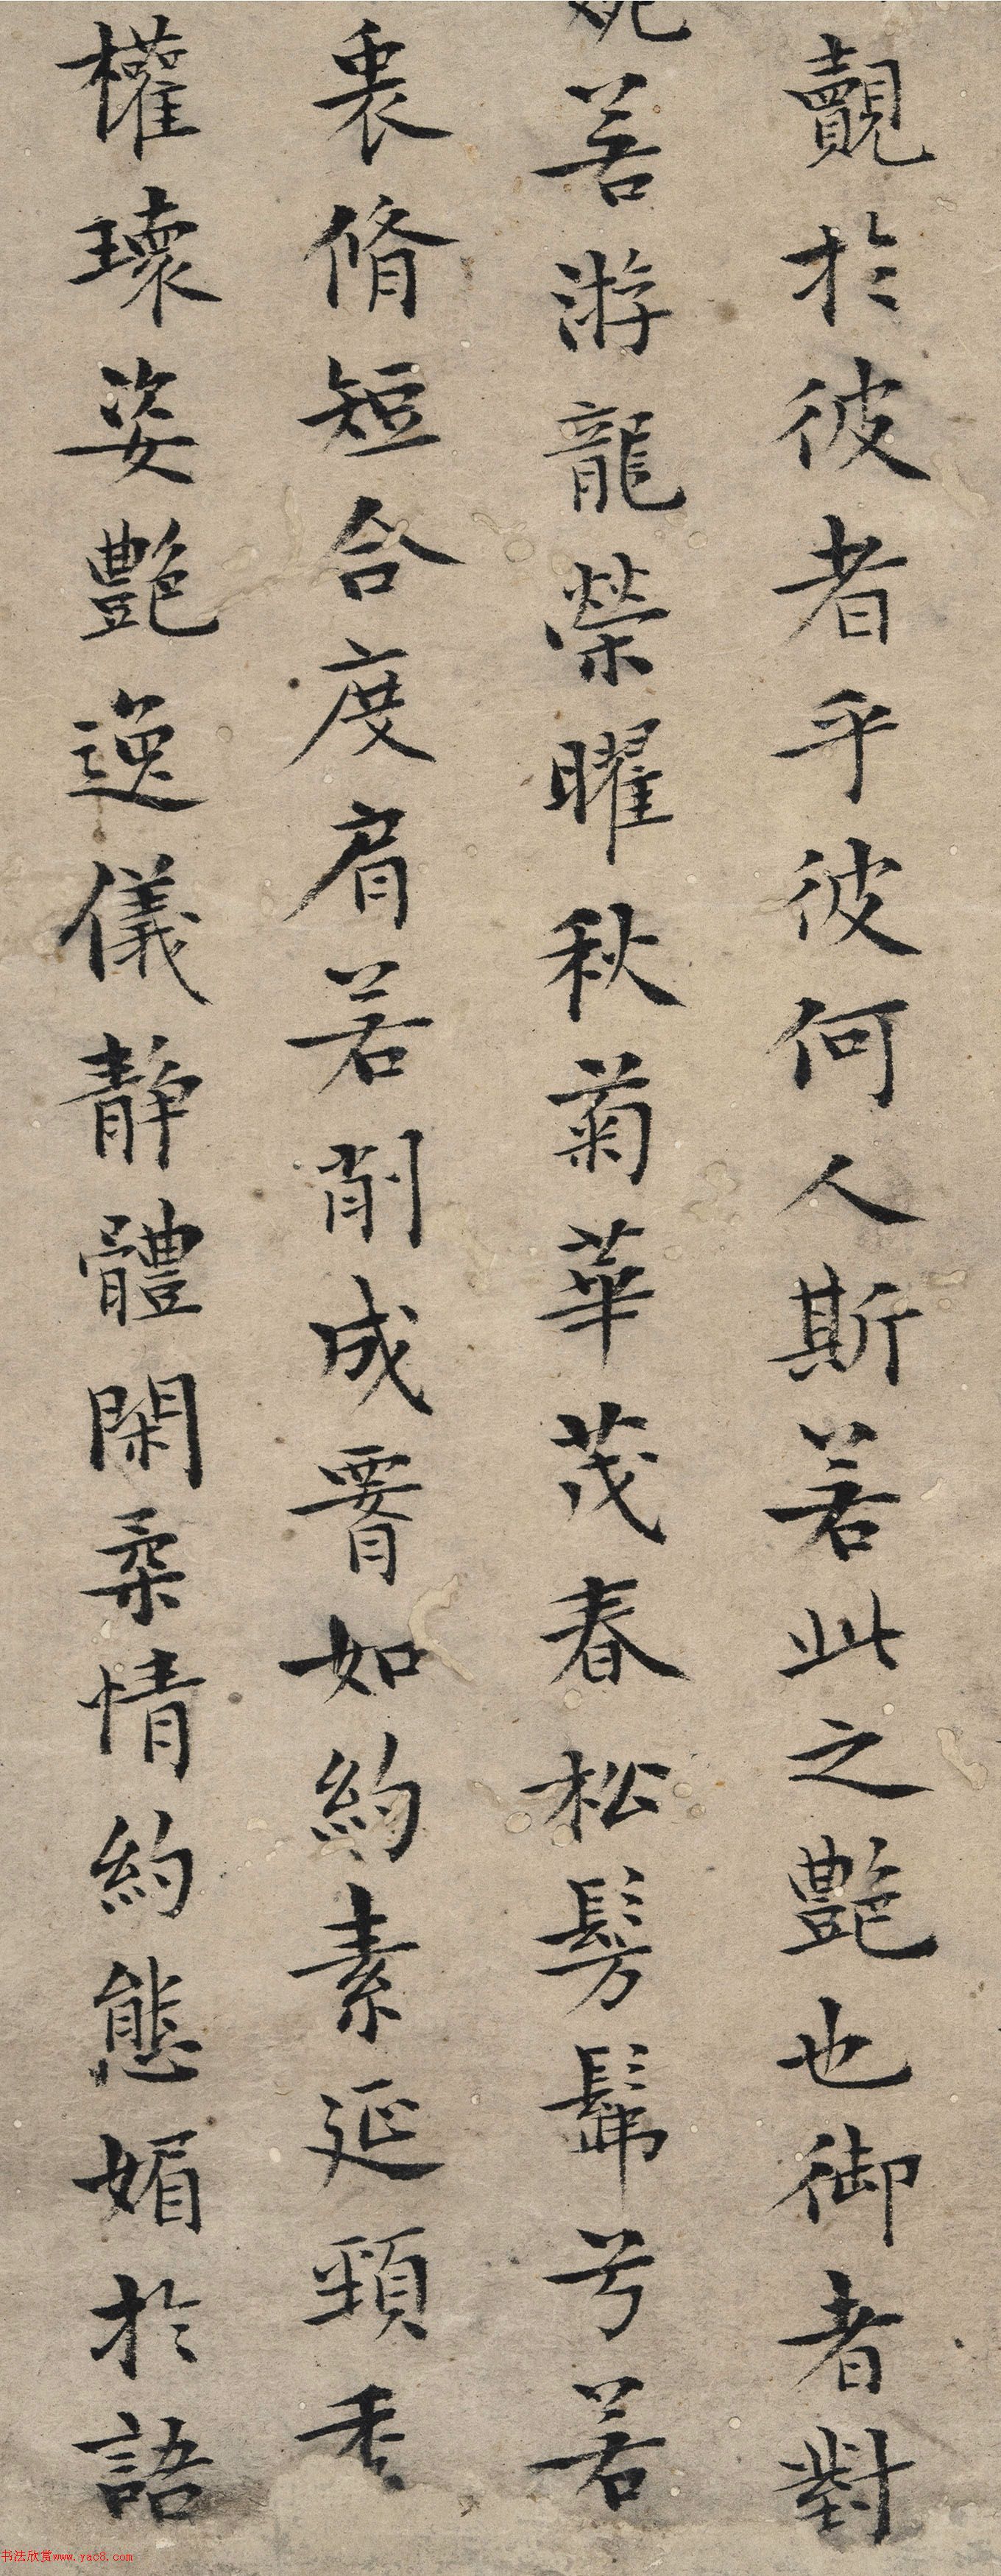 覿於彼者乎彼何人斯若此之艷也御者對
若游龍榮曜秋菊華茂春松髣髴兮若
衷脩短合度肩若削成要如約素延頸秀
權瓌姿艷逸儀静體閑柔情約態媚於語
书法欣赏www.yac8.com